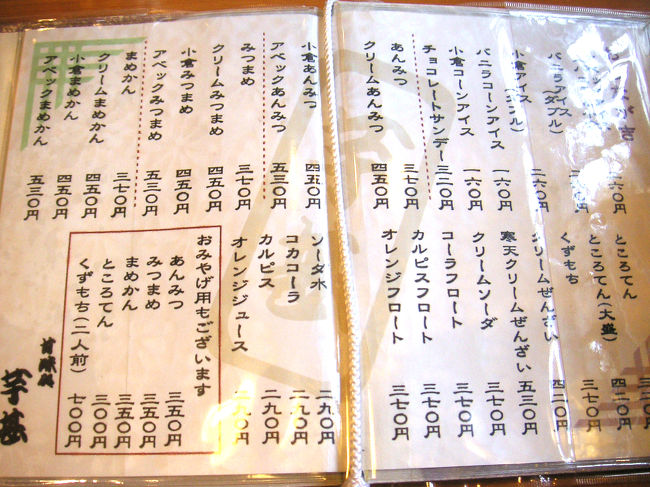 バニラアイス
(ダブル)
小倉アイス
(ダブル) 二六〇円
バニラコーンアイス 一六〇円
小倉コーンアイス 一六〇円
チョコレートサンデー 三二〇円
あんみつ 三七〇円
クリームあんみつ 四五〇円
ところてん 四二〇円
ところてん(大盛) 三七〇円
くずもち 四二〇円
クリームぜんざい 五三〇円
寒天クリームぜんざい
クリームソーダ 三七〇円
コーラフロート 三七〇円
カルピスフロート 三七〇円
オレンジフロート 三七〇円
小倉あんみつ 四五〇円
アベックあんみつ 五三〇円
みつまめ 三七〇円
クリームみつまめ 四五〇円
小倉みつまめ 四五〇円
アベックみつまめ 五三〇円
まめかん 三七〇円
クリームまめかん 四五〇円
小倉まめかん 四五〇円
アベックまめかん 五三〇円
ソーダ水 二九〇円
コカコーラ 二九〇円
カルピス 二九〇円
オレンジジュース 二九〇円
おみやげ用もございます
あんみつ 三五〇円
みつまめ 三五〇円
まめかん 三五〇円
ところてん 三〇〇円
くずもち(二人前) 七〇〇円
甘味処
芋甚